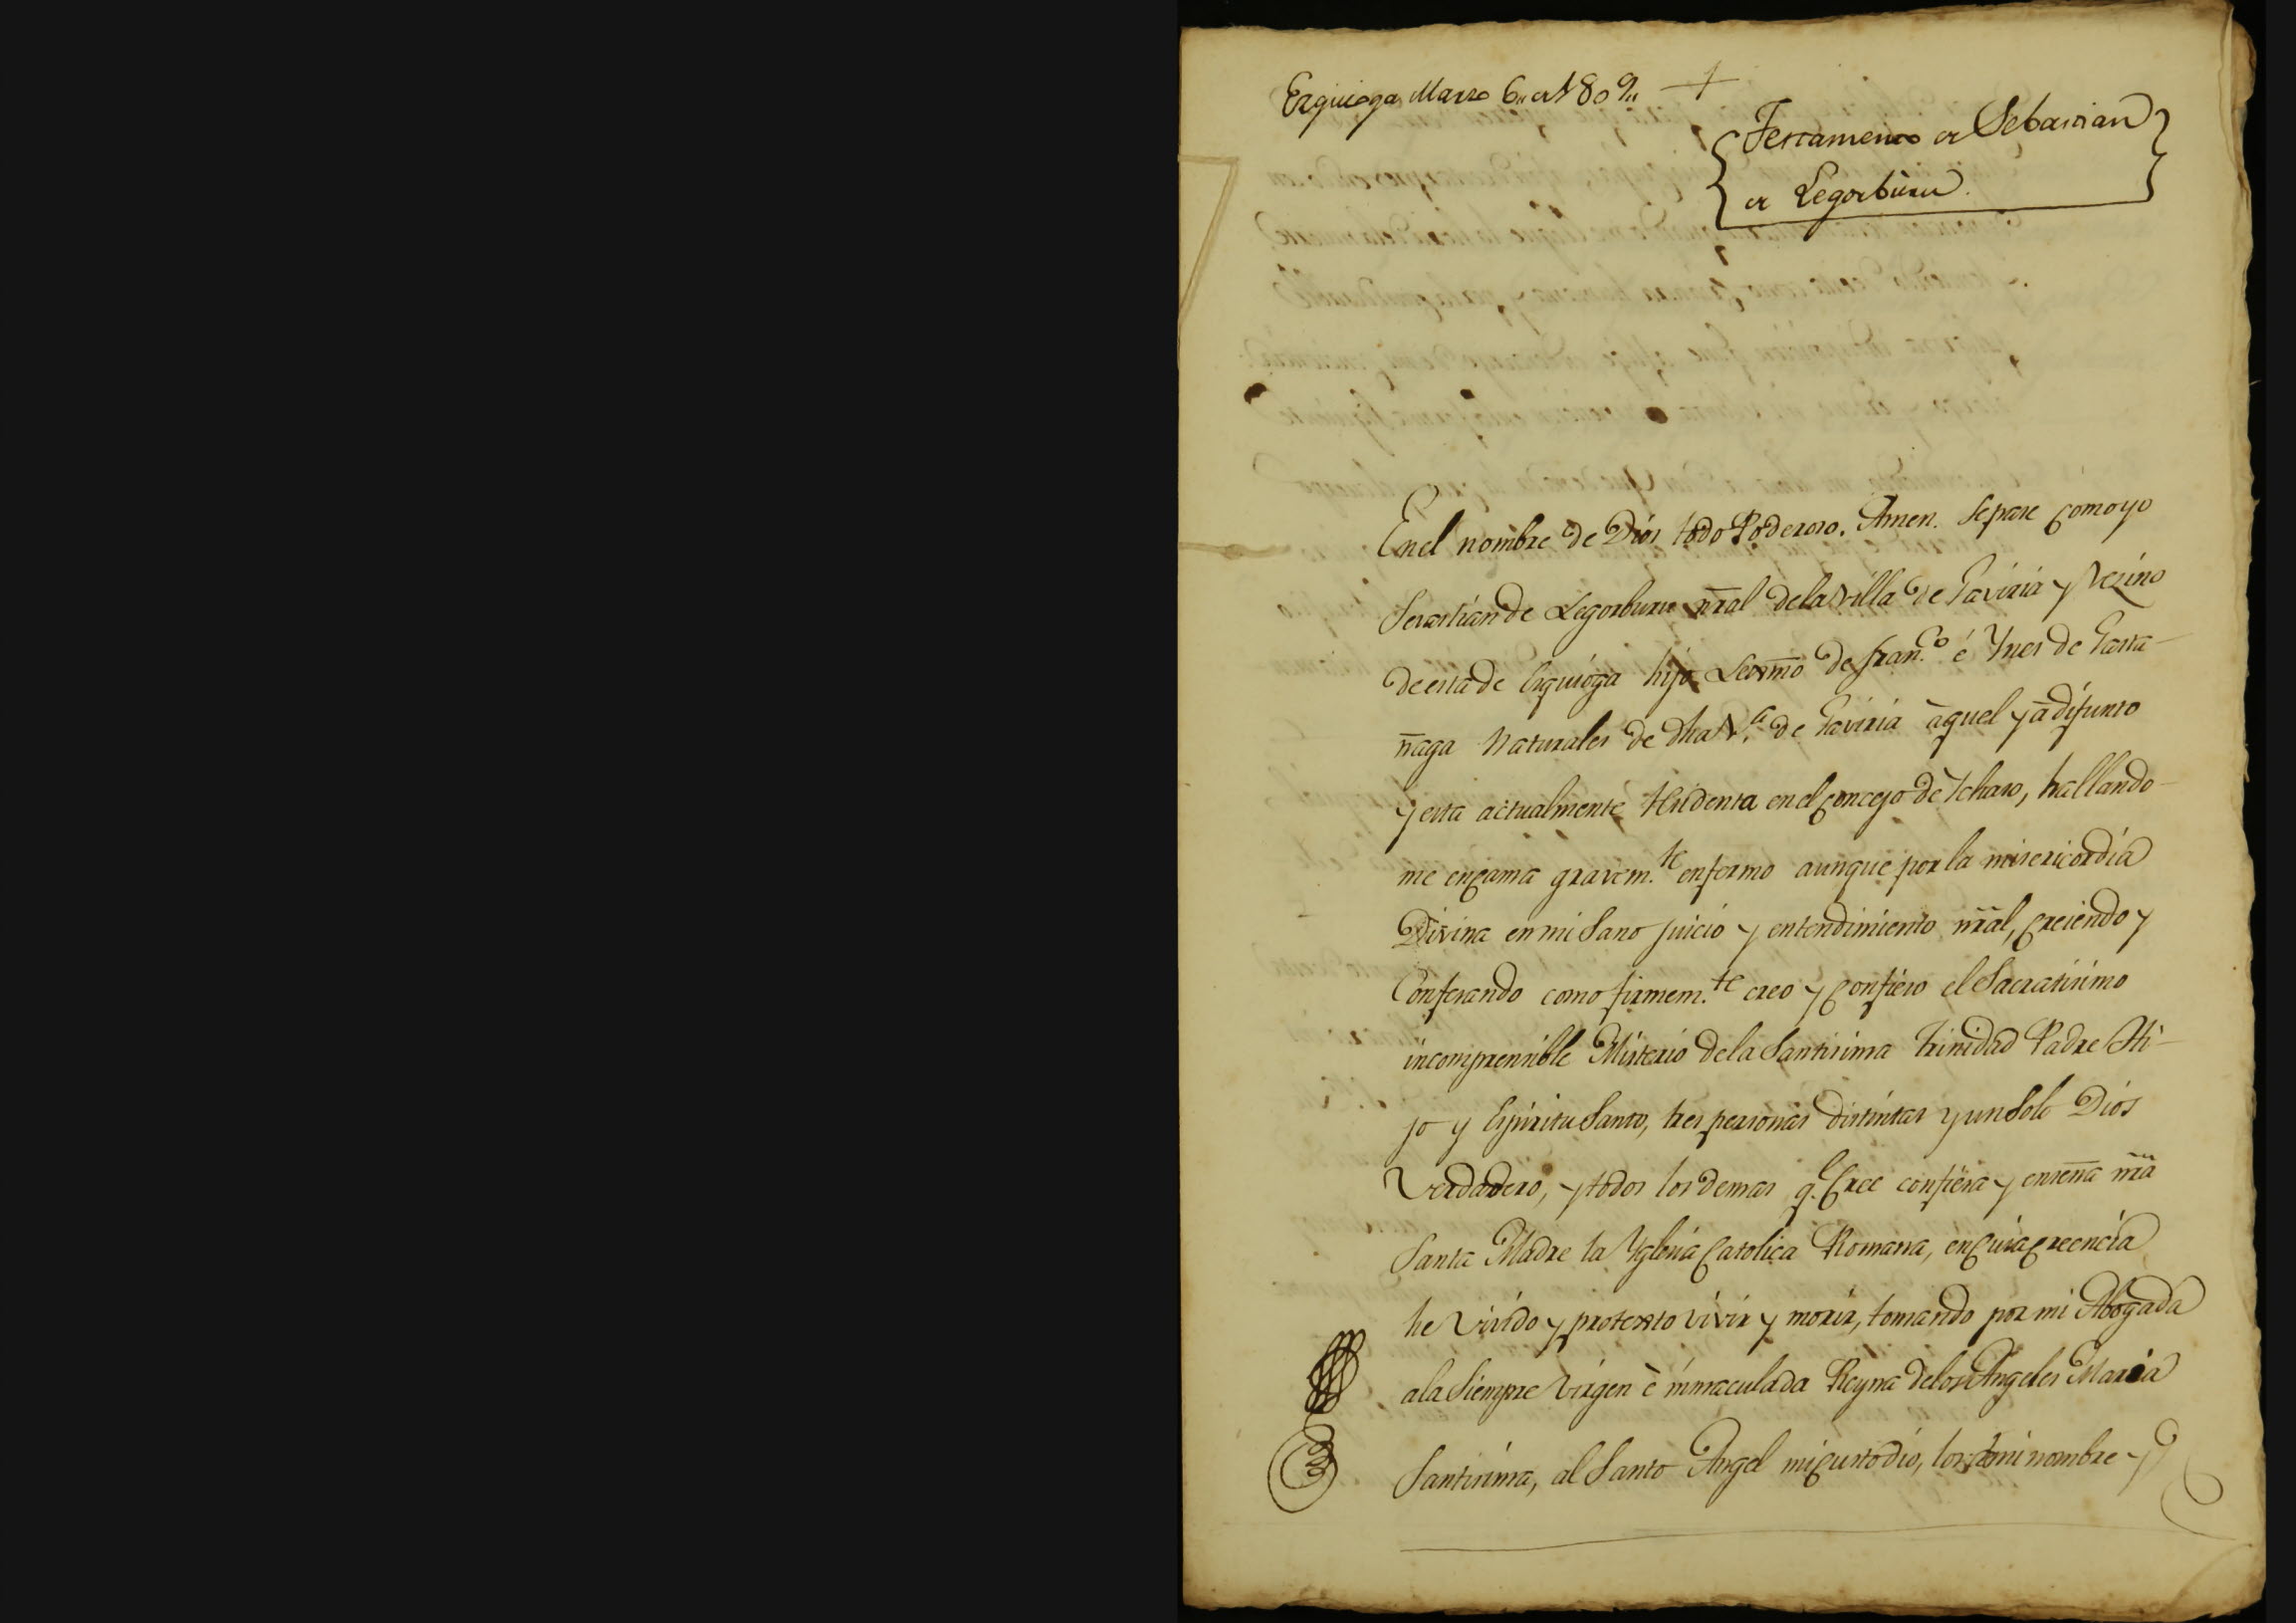 Ezquioga Marzo 6,, de 1809,,
Testamento de Sebastian
de Legorburu.
En el nombre de Dios todo Poderoso. Amen. Sepase como yo
Sevastian de Legorburu nr̃al de la villa de Gaviria y Vezino
de esta de Ezquioga hijo Lexmo de Fran.co é Ynes de Gasta-
ñaga Naturales de dha V.a de Gaviria àquel yà difunto
y esta actualmente Residenta en el Concejo de Ychaso, hallando-
me en cama gravem.te enfermo aunque por la misericordia
Divina en mi Sano juicio y entendimiento nr̃al, creiendo y
Confesando como firmem.te creo y confieso el Sacratisimo
incomprensible Misterio de la Santisima trinidad Padre Hi-
jo y Espiritu Santo, tres personas distintas y un Solo Dios
Verdadero, y todos los demas q.e Cree confiesa y enseña nr̃a
Santa Madre la Yglesia Catolica Romana, en cuia creencia
he Vivido y protexto vivir y morir, tomando por mi Abogada
ala Siempre Virgen è inmaculada Reyna delos Angeles Maria
Santisima, al Santo Angel mi Custodio, los de mi nombre y